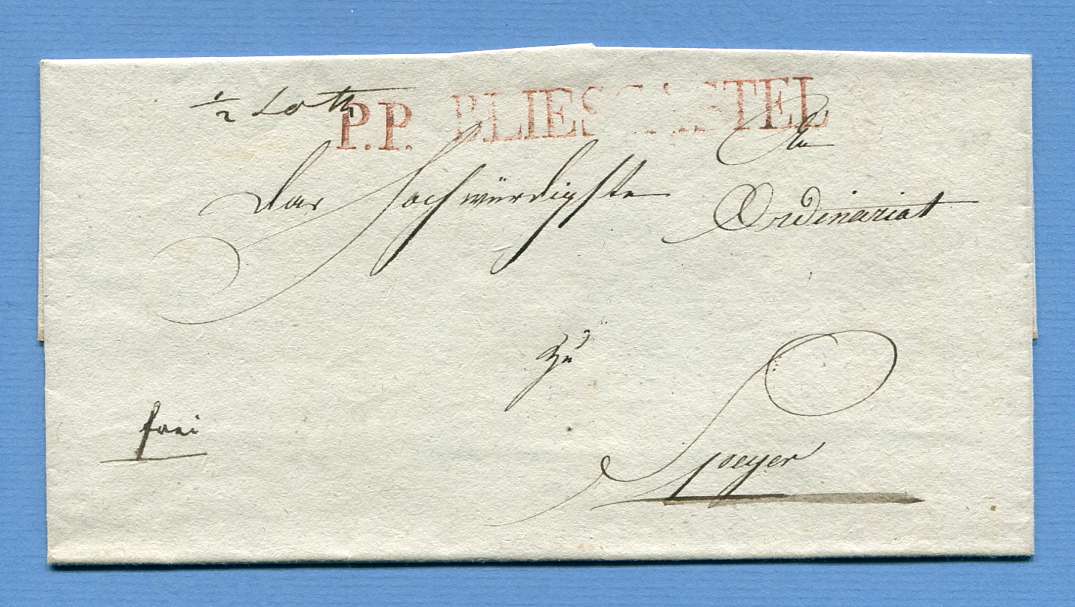 ½ Loth
P.P. BLIESCASTEL
An
das Hochwürdigste Ordinariat
zu
frei
Speyer